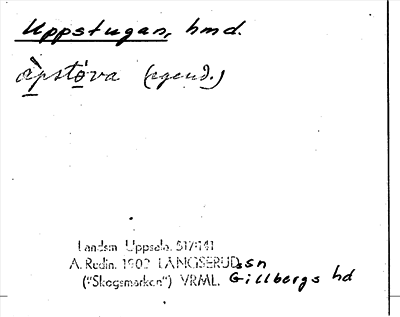 Uppstugan, hmd.
àpstòva (egend.)
Landsm. Uppsala. 517:141
A. Redin. 1902 LÅNGSERUD ssn
("Skogsmarken") VRML. Gillbergs hd